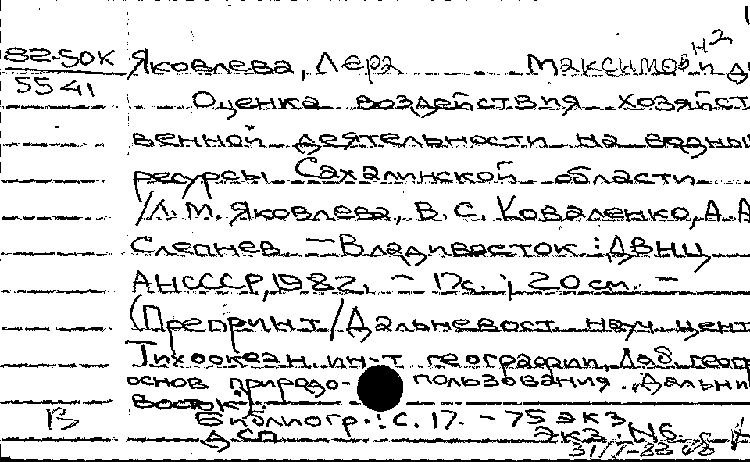 82-50К Яковлева, Лера Максимовн
5541
Оценка воздействия хозяйст
венной деятельности на водны
ресурсы Сахалинской области
/Л.М. Яковлева, В.С. Коваленко, А.А
Слепнев. — Владивосток : ДВНЦ
АН СССР, 1982. – 17с. ; 20 см. –
(Препринт/Дальневост. науч. цент
Тихоокеан. ин-т географии, Лаб. геогр
основ природо- пользования. Дальни
Восток.
В Библиогр.: с. 17. – 75 экз
ДСП Экз. №6